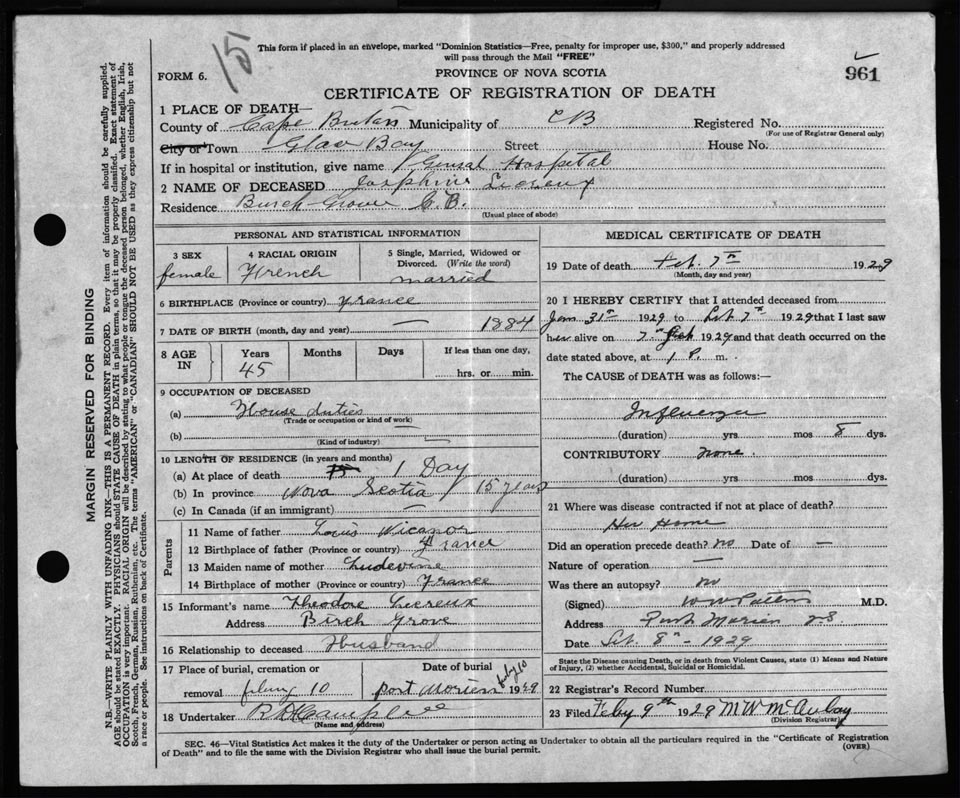 15
This form if placed in an envelope, marked "Dominion Statistics—Free, penalty for improper use, $300," and properly addressed
will pass through the Mail "FREE"
FORM 6.
PROVINCE OF NOVA SCOTIA
961
CERTIFICATE OF REGISTRATION OF DEATH
MARGIN RESERVED FOR BINDING
N.B.—WRITE PLAINLY WITH UNFADING INK—THIS IS A PERMANENT RECORD. Every item of information should be carefully supplied.
AGE should be stated EXACTLY. PHYSICIANS should STATE CAUSE OF DEATH in plain terms, so that it may be properly classified. Exact statement of
OCCUPATION is very important. RACIAL ORIGIN will be described by stating to what people or tongue the deceased person belonged, whether English, Irish,
Scotch, French, German, Russian, Ruthenian, etc. The terms "AMERICAN" or "CANADIAN" SHOULD NOT BE USED as they express citizenship but not
a race or people. See instructions on back of Certificate.
1 PLACE OF DEATH—
County of Cape Breton Municipality of CB Registered No.
(For use of Registrar General only)
City or Town Glace Bay Street House No.
If in hospital or institution, give name General Hospital
2 NAME OF DECEASED Josphine Lecreux
Residence Burch Grove C.B.
(Usual place of abode)
PERSONAL AND STATISTICAL INFORMATION
3 SEX 4 RACIAL ORIGIN 5 Single, Married, Widowed or
Divorced. (Write the word)
female French married
6 BIRTHPLACE (Province or country) France
7 DATE OF BIRTH (month, day and year) — 1884
8 AGE IN Years Months Days If less than one day,
45 hrs. or min.
9 OCCUPATION OF DECEASED
(a) House duties
(Trade or occupation or kind of work)
(b) —
(Kind of industry)
10 LENGTH OF RESIDENCE (in years and months)
(a) At place of death 15 1 Day
(b) In province Nova Scotia 15 years
(c) In Canada (if an immigrant) —
Parents
11 Name of father Louis Nicanor
12 Birthplace of father (Province or country) France
13 Maiden name of mother Ludevine
14 Birthplace of mother (Province or country) France
15 Informant's name Theodore Lecreux
Address Birch Grove
16 Relationship to deceased Husband
17 Place of burial, cremation or Date of burial
removal 10 port Morien feby 10 1929
18 Undertaker R D Campbell
(Name and address)
MEDICAL CERTIFICATE OF DEATH
19 Date of death Feb. 7th 1929
(Month, day and year)
20 I HEREBY CERTIFY that I attended deceased from
Jan 31st 1929 to Feb 7th 1929 that I last saw
her alive on 7th Feb 1929 and that death occurred on the
date stated above, at 1 P. m.
The CAUSE OF DEATH was as follows:—
Influenza
(duration) yrs mos 8 dys.
CONTRIBUTORY none.
(duration) yrs. mos dys.
21 Where was disease contracted if not at place of death?
Her Home
Did an operation precede death? no Date of —
Nature of operation —
Was there an autopsy? no
(Signed) M.D.
Address Port Morien NS
Date Feb. 8th - 1929
State the Disease causing Death, or in death from Violent Causes, state (1) Means and Nature
of Injury, (2) whether Accidental, Suicidal or Homicidal.
22 Registrar's Record Number
23 Filed Feby 9th 1929 M W McAulay
(Division Registrar)
SEC. 46—Vital Statistics Act makes it the duty of the Undertaker or person acting as Undertaker to obtain all the particulars required in the "Certificate of Registration
of Death" and to file the same with the Division Registrar who shall issue the burial permit.
(OVER)